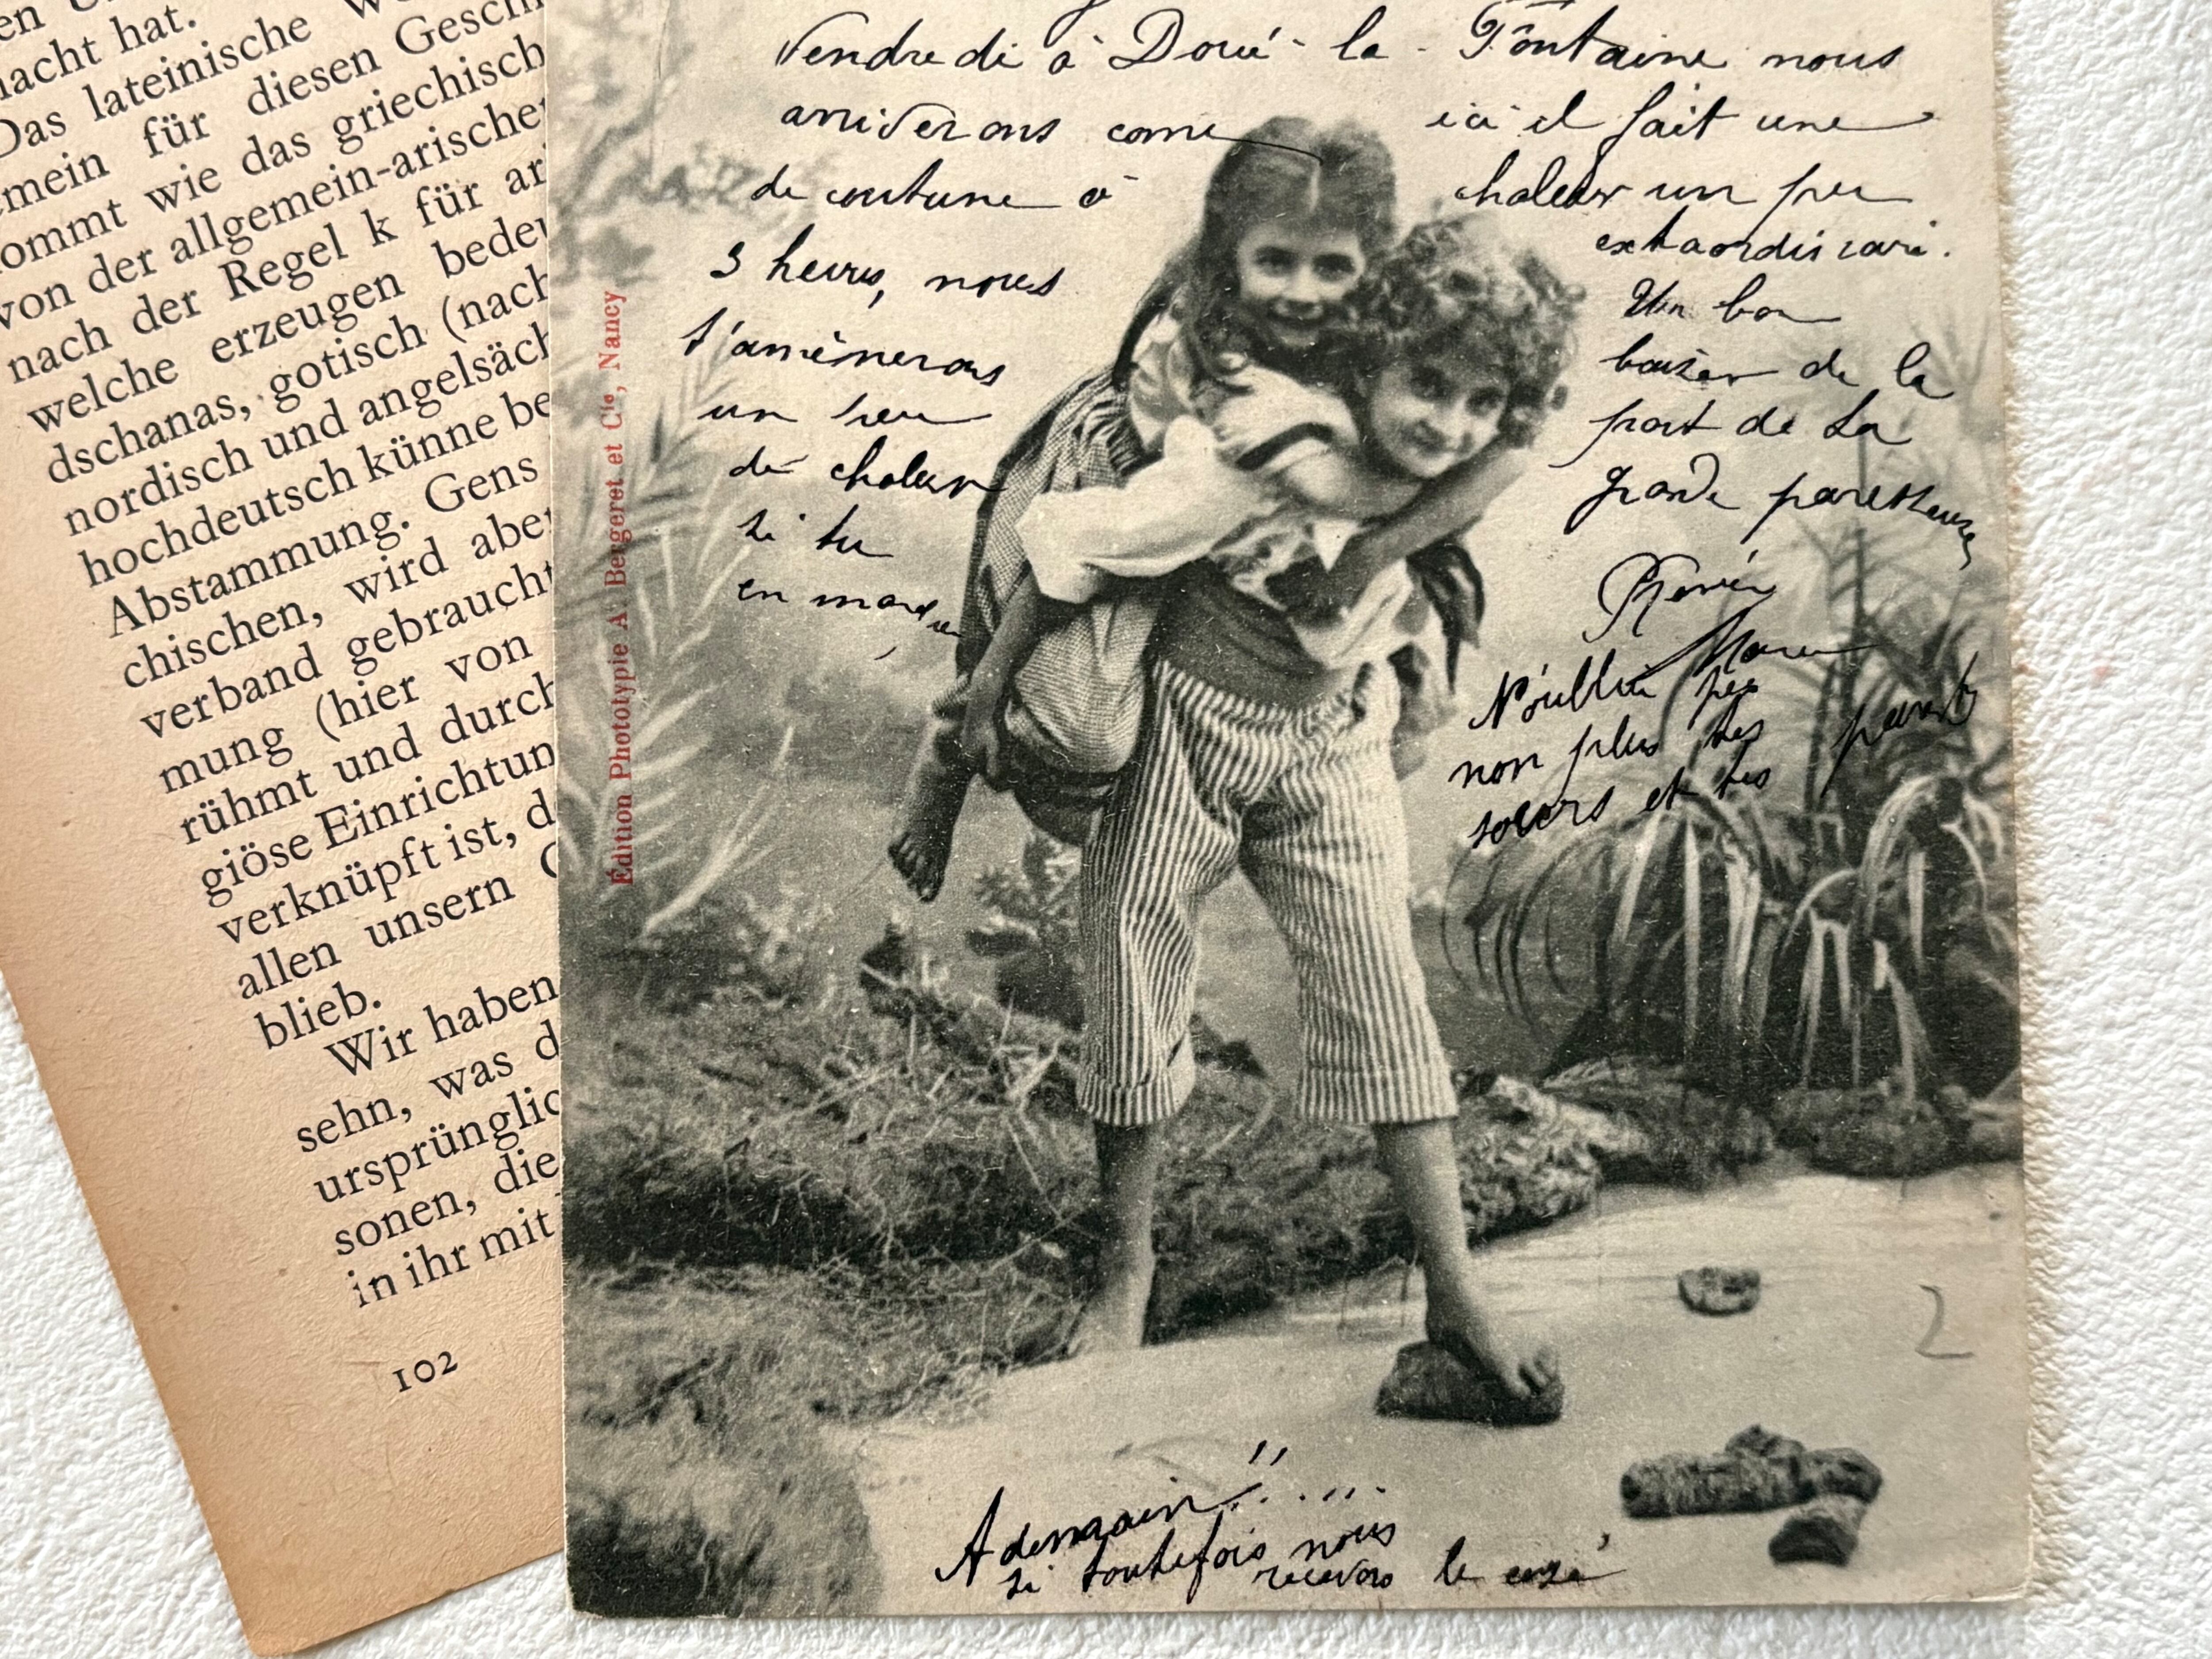 macht hat.
Das lateinische
für diesen Gesch
wie das griechisch
von der allgemein-arischen
nach der Regel k für ar
welche erzeugen bedeu
dschanas, gotisch (nach
nordisch und angelsäch
hochdeutsch künne be
Abstammung. Gens
chischen, wird aber
verband gebraucht
mung (hier von
rühmt und durch
giöse Einrichtun
verknüpft ist, d
allen unsern
blieb.
Wir haben
sehn, was d
ursprünglic
sonen, die
in ihr mit
102
Édition Phototypie A. Bergeret et Cie, Nancy
Vendredi à Doué-la-Fontaine nous
arriverons come
de coutume à
3 heures, nous
t'amènerons
un peu
de chaleur
si tu
en manque
ici il fait une
chaleur un peu
extaordinaire.
Un bon
baiser de la
part de la
grande paresseuse
N'oublie pas
non plus tes
soeurs et tes parents
2
A demain!! . . . . .
si toutefois nous
recevons le